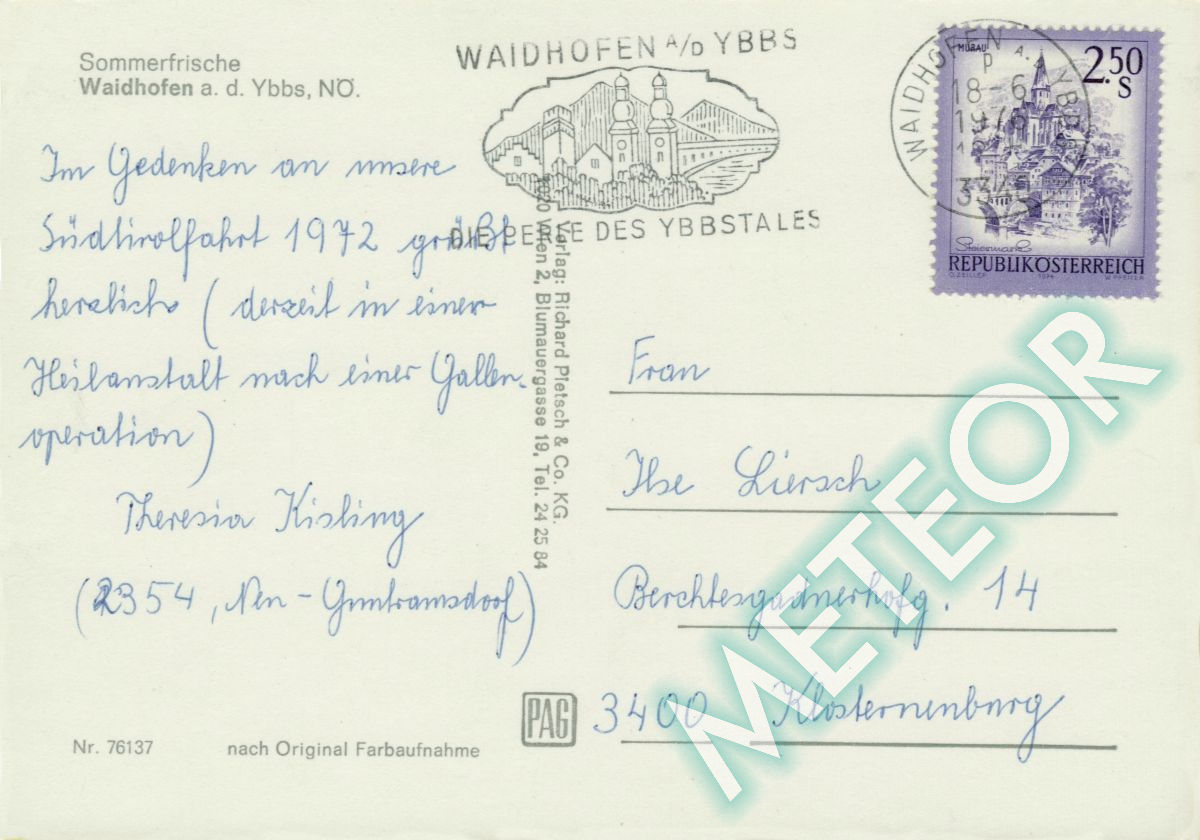 Sommerfrische
Waidhofen a. d. Ybbs, NÖ.
WAIDHOFEN A/D YBBS
DIE PERLE DES YBBSTALES
WAIDHOFEN A. D. YBBS
P
18-6
1976
MURAU
2.50
S
Steiermark
REPUBLIK ÖSTERREICH
O. ZEILLER 1974 W. PFEILER
Im Gedenken an unsere
Südtirolfahrt 1972 grüßt
herzlich (derzeit in einer
Heilanstalt nach einer Gallen-
operation)
Theresia Kisling
(2354, Neu-Guntramsdorf)
Verlag: Richard Pietsch & Co. KG.
1020 Wien 2, Blumauergasse 19, Tel. 24 25 84
Frau
Ilse Liersch
Berchtesgadnerhofg. 14
3400 Klosterneuburg
PAG
Nr. 76137
nach Original Farbaufnahme
METEOR